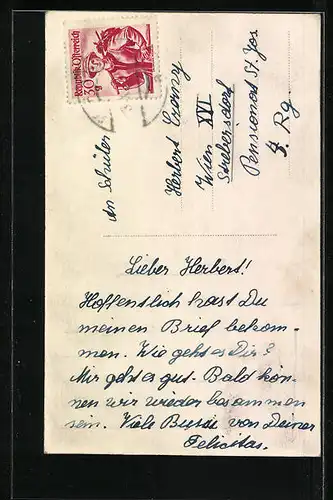 Republik Österreich
30 g
An Schüler
Herbert
Wien XVI
Strebersdorf
Pensionat St. Jos
Rg.
Lieber Herbert!
Hoffentlich hast Du
meinen Brief bekom-
men. Wie geht es Dir?
Mir geht es gut. Bald kön-
nen wir wieder beisammen
sein. Viele Bussi von Deiner
Felicitas.